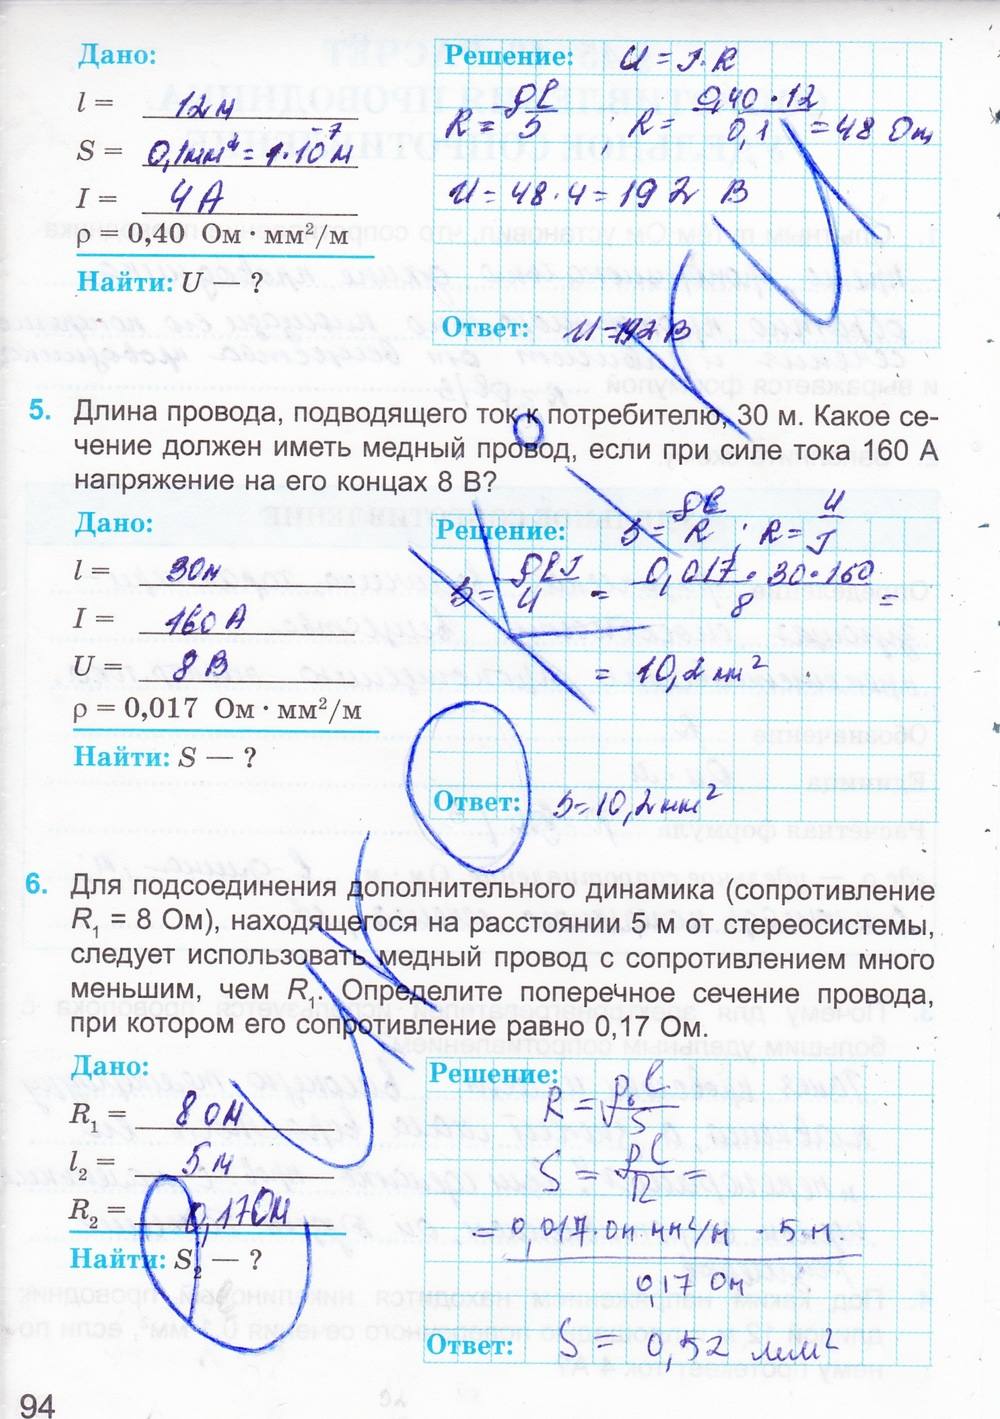 Дано:
l = 12 м
S = 0,1 мм² = 1·10⁻⁷ м
I = 4 А
ρ = 0,40 Ом · мм²/м
Найти: U — ?
Решение: U = I·R
R = ρl/S ; R = 0,40·12/0,1 = 48 Ом
U = 48·4 = 192 В
Ответ: U = 192 В
5. Длина провода, подводящего ток к потребителю, 30 м. Какое се-
чение должен иметь медный провод, если при силе тока 160 А
напряжение на его концах 8 В?
Дано:
l = 30м
I = 160 А
U = 8 В
ρ = 0,017 Ом · мм²/м
Найти: S — ?
Решение: S = ρl/R ; R = U/I
S = ρlI/U = 0,017·30·160/8 =
= 10,2 мм²
Ответ: S = 10,2 мм²
6. Для подсоединения дополнительного динамика (сопротивление
R₁ = 8 Ом), находящегося на расстоянии 5 м от стереосистемы,
следует использовать медный провод с сопротивлением много
меньшим, чем R₁. Определите поперечное сечение провода,
при котором его сопротивление равно 0,17 Ом.
Дано:
R₁ = 8 Ом
l₂ = 5 м
R₂ = 0,17 Ом
Найти: S₂ — ?
Решение:
R = ρl/S
S = ρl/R =
= 0,017 Ом мм²/м · 5 м / 0,17 Ом
Ответ: S = 0,52 мм²
94